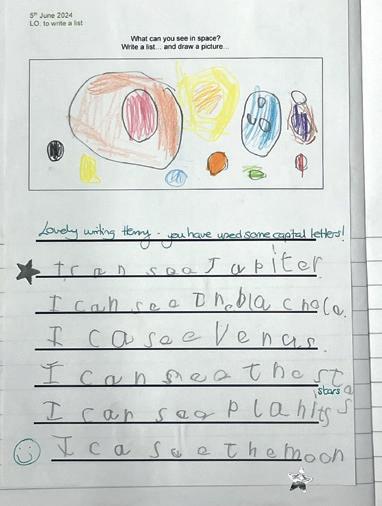 5th June 2024
LO. to write a list
What can you see in space?
Write a list… and draw a picture…
Lovely writing Henry - you have used some capital letters!
I can see Jupiter
I can see the bla c hole.
I ca see Venus.
I can see the sta
stars
I can see planits
I ca see the moon